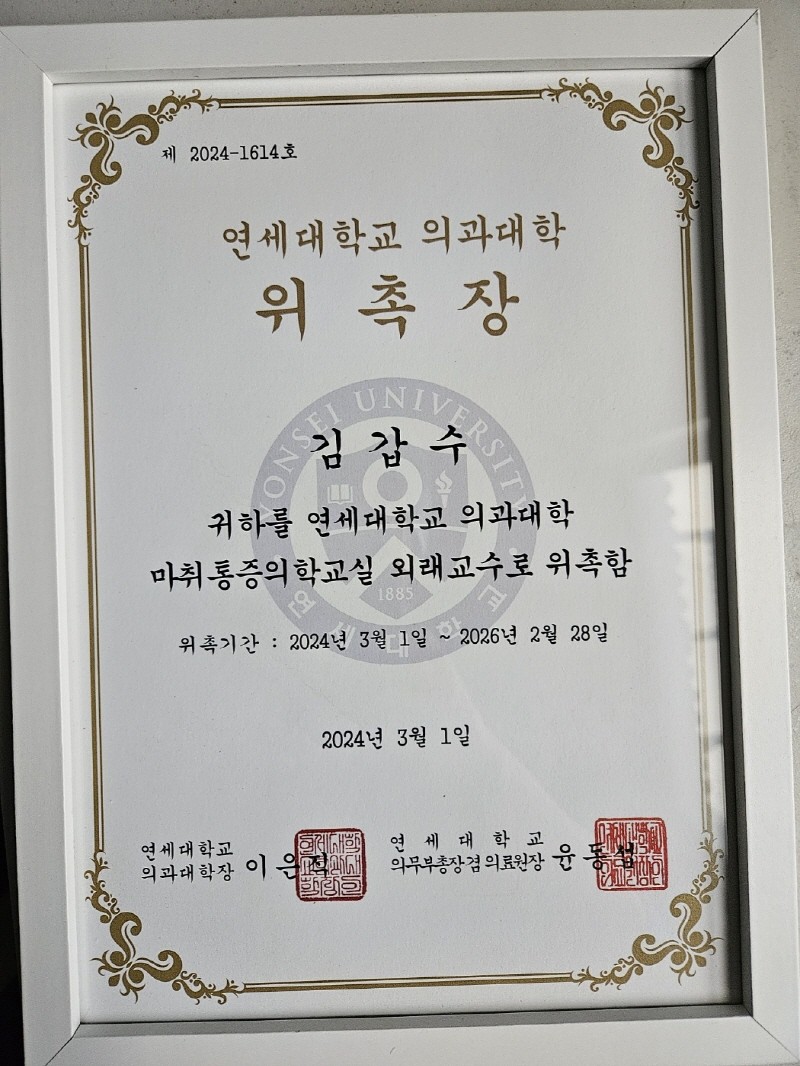 제 2024-1614호
연세대학교 의과대학
위 촉 장
YONSEI UNIVERSITY
김 갑 수
귀하를 연세대학교 의과대학
마취통증의학교실 외래교수로 위촉함
1885
연세대학교
위촉기간 : 2024년 3월 1일 ~ 2026년 2월 28일
2024년 3월 1일
연세대학교
의과대학장 이 은 직
연 세 대 학 교
의무부총장겸 의료원장 윤 동 섭